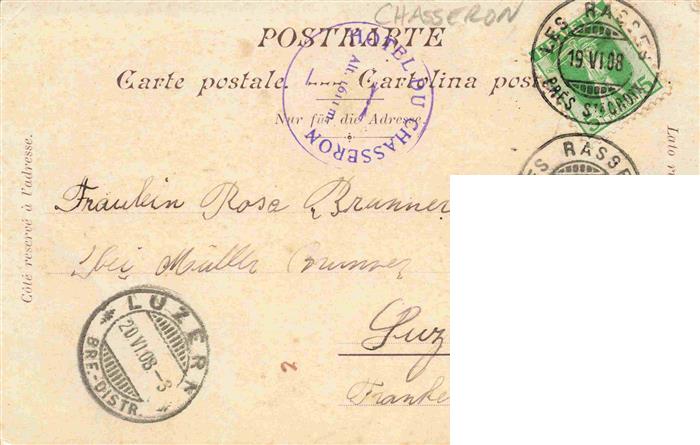 CHASSERON
POSTKARTE
Carte postale. Cartolina post
Nur für die Adresse.
HOTEL DU CHASSERON
Alt. 1611 m
LES RASSES
19 VI 08
PRÈS STE CROIX
5
ES RASSE
Côté reservé à l'adresse.
Lato r
Fräulein Rosa Brunner
bei Müller Brunner
Luz
Franke
LUZERN
20 VI 08 - 3
BRF.-DISTR.
2